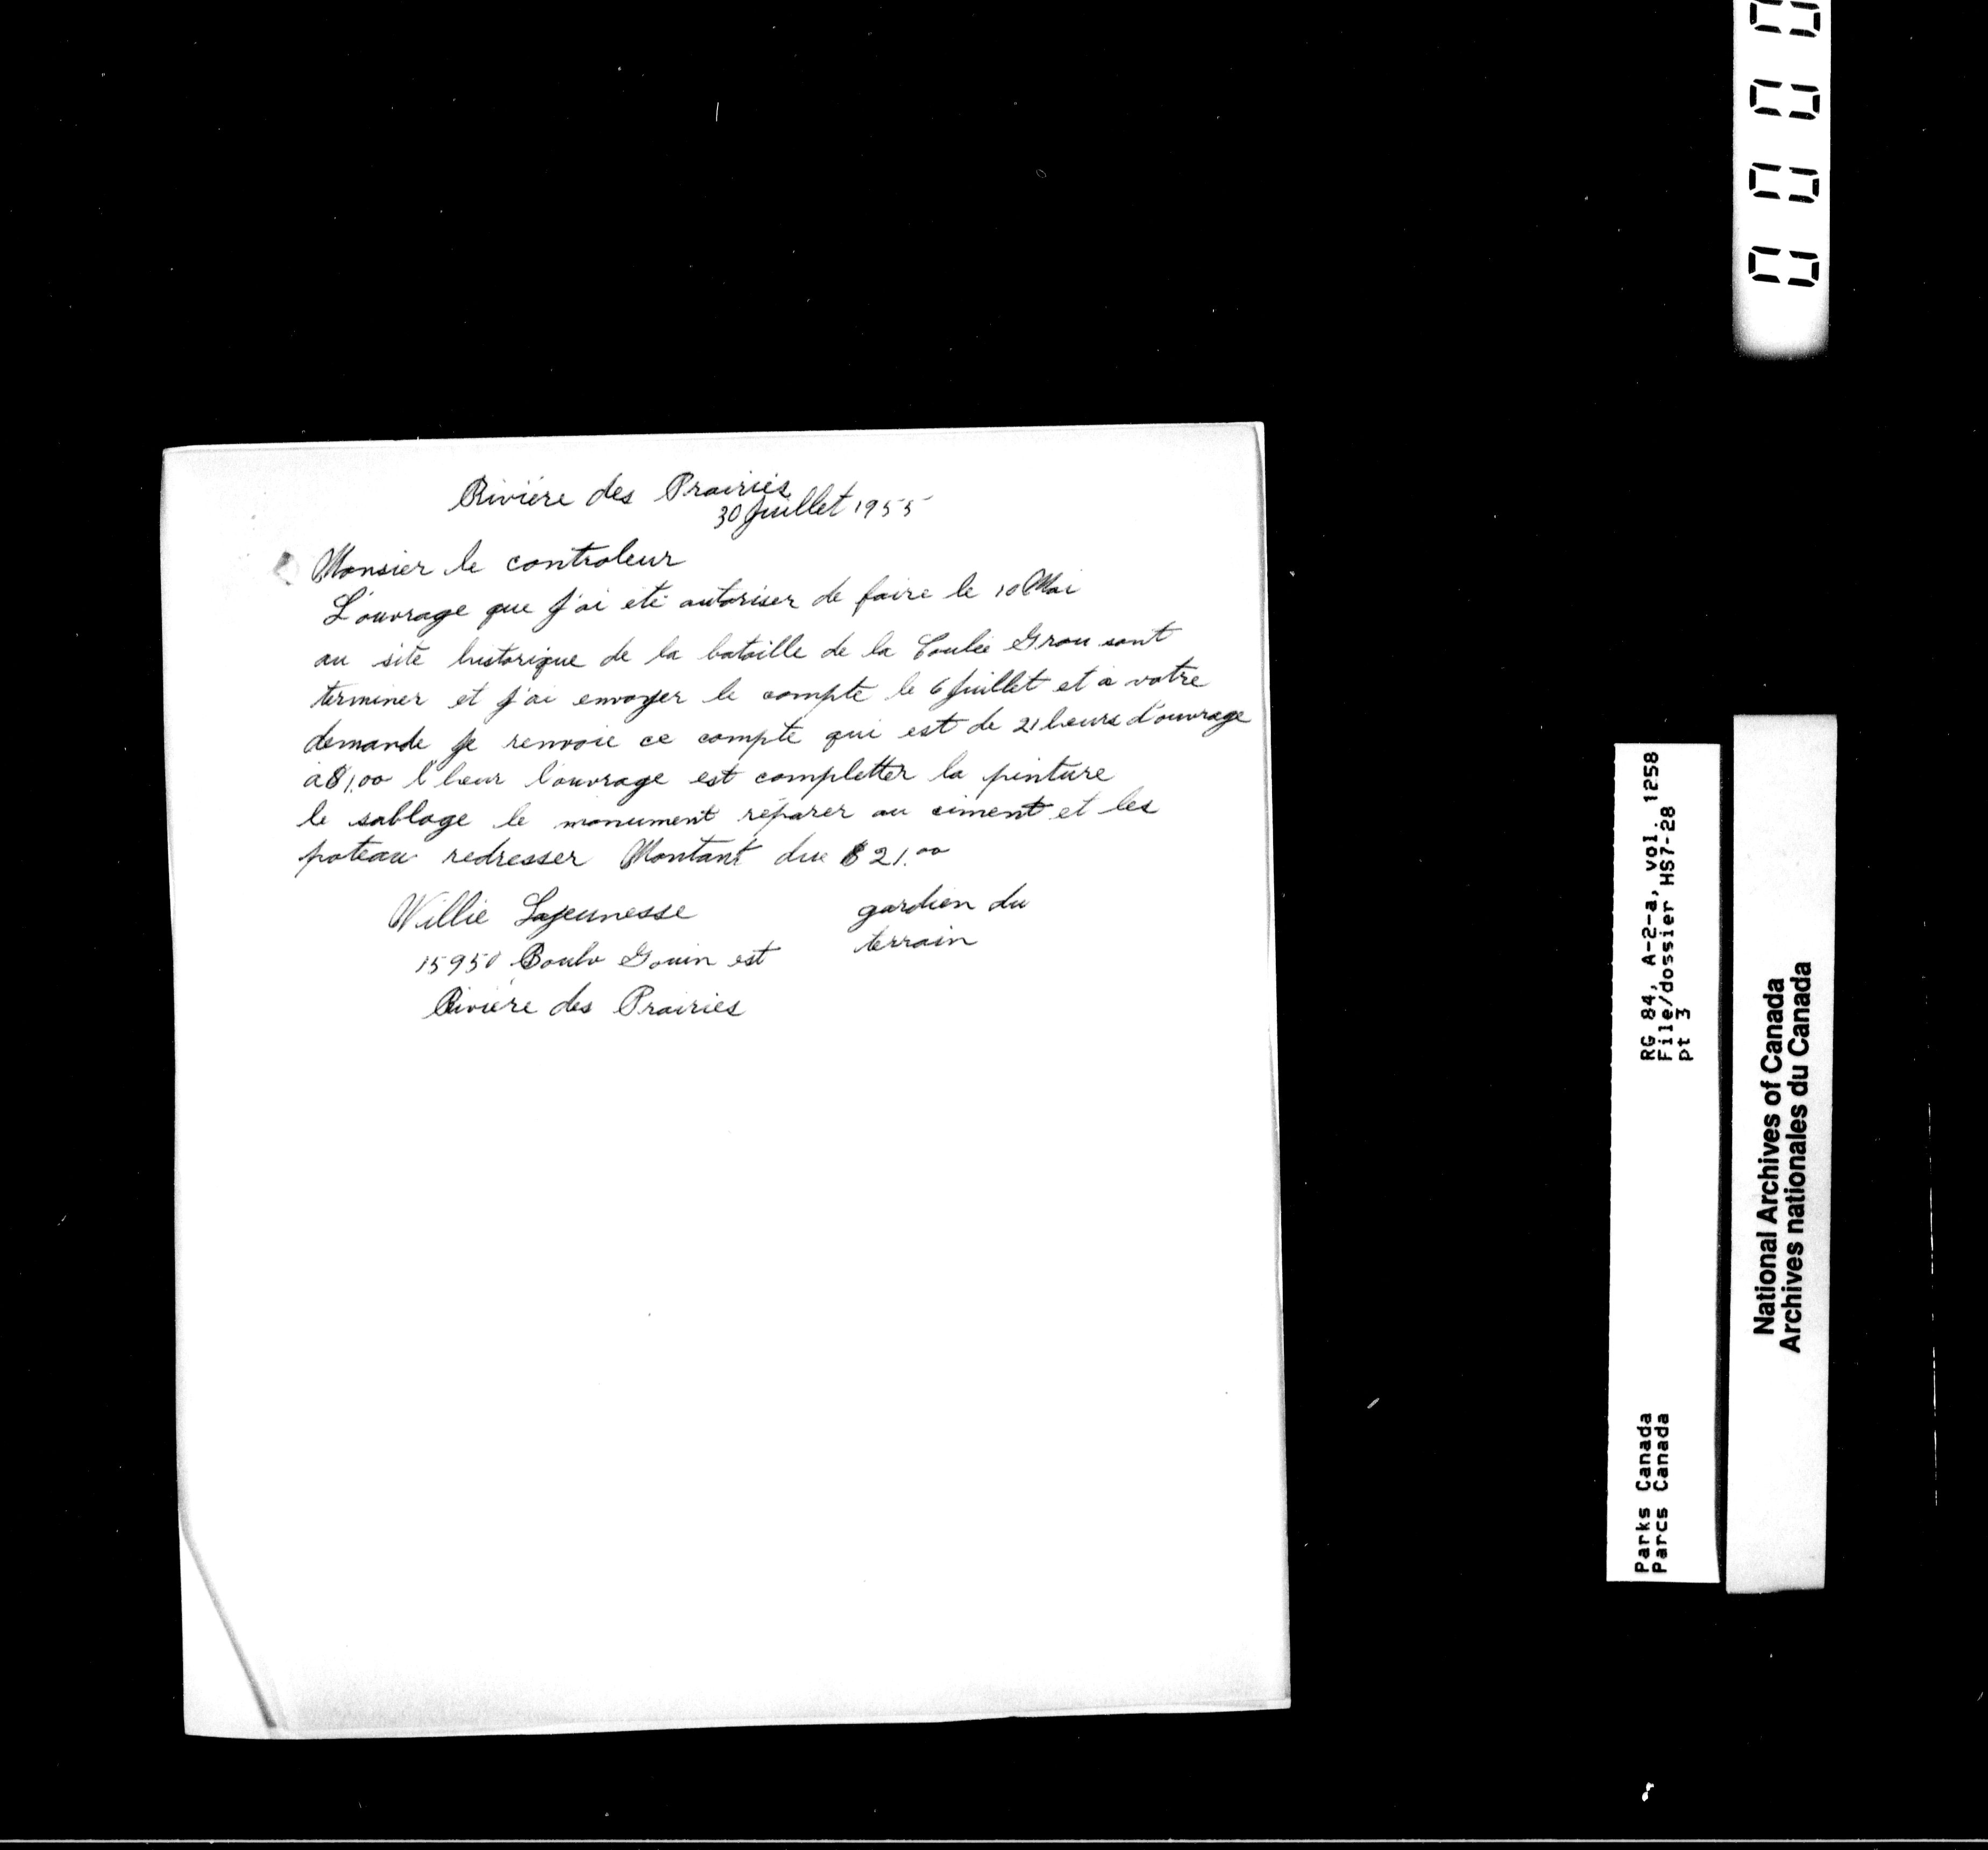 Rivière des Prairies
30 Juillet 1955
Monsier le controleur
L'ouvrage que j'ai eté autoriser de faire le 10 Mai
au site historique de la bataille de la Coulée Grou sont
terminer et j'ai envoyer le compte le 6 Juillet et a votre
demande je renvoie ce compte qui est de 21 heurs d'ouvrage
a $1.00 l'heur l'ouvrage est completter la pinture
le sablage le monument réparer au ciment et les
poteau redresser Montant due $21.00
Willie Lajeunesse
gardien du
terrain
15950 Boulv Gouin est
Rivière des Prairies
0000
RG 84, A-2-a, vol. 1258
File/dossier HS7-28
pt 3
Parks Canada
Parcs Canada
National Archives of Canada
Archives nationales du Canada